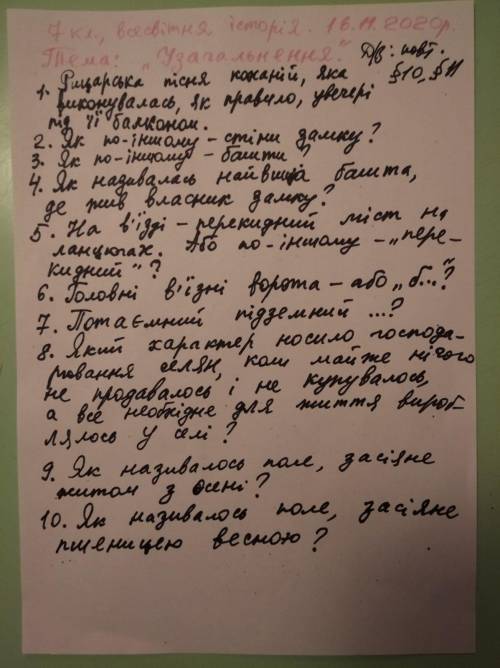 7 кл., всесвітня історія. 16.11.2020р.
Тема: „Узагальнення". Д/з: повт. §10, §11
1. Рицарська пісня коханій, яка
виконувалась, як правило, увечері
під її балконом.
2. Як по-іншому - стіни замку?
3. Як по-іншому - башти?
4. Як називалась найвища башта,
де жив власник замку?
5. На в'їзді - перекидний міст на
ланцюгах. Або по-іншому - „пере-
кидний"?
6. Головні в'їзні ворота - або „б...?
7. Потаємний підземний ...?
8. Який характер носило господа-
рювання селян, коли майже нічого
не продавалось і не купувалось,
а все необхідне для життя вироб-
лялось у селі?
9. Як називалось поле, засіяне
житом з осені?
10. Як називалось поле, засіяне
пшеницею весною?